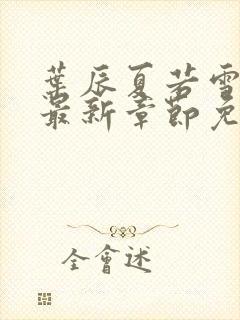 葉辰夏若雪
最新章節免
全會述